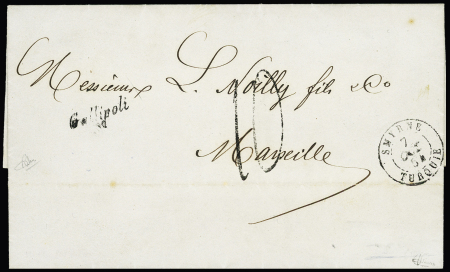 Messieurs L. Noilly fils & Co
Gallipoli
10
Marseille
SMIRNE
7
TURQUIE